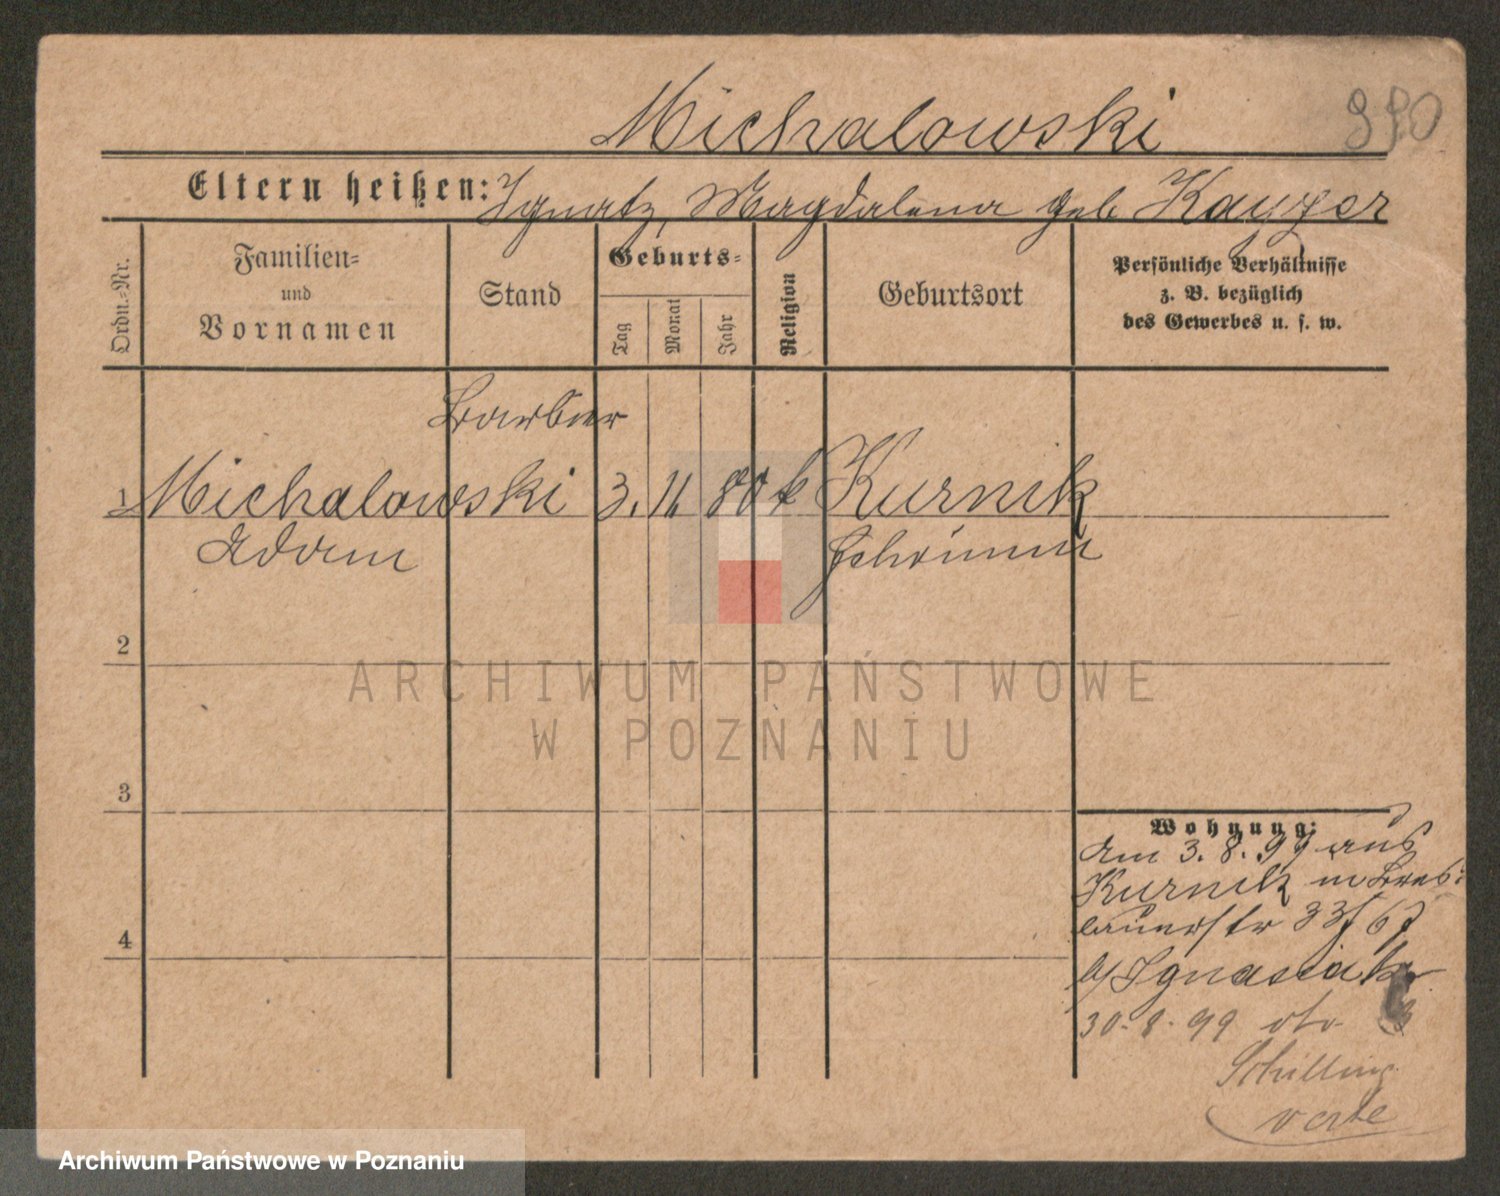 Michalowski
Eltern heißen: Ignatz, Magdalena geb Kayzer
Ordn.-Nr.
Familien-
und
Vornamen
Stand
Geburts-
Tag
Monat
Jahr
Religion
Geburtsort
Persönliche Verhältnisse
z. B. bezüglich
des Gewerbes u. s. w.
Barbier
1 Michalowski 3. 11. 80 k Kurnik
Adam Schrimm
2
3
4
Wohnung:
Am 3. 8. 99 aus
Kurnik in Bres-
lauerstr
b/ Ignasiak
30. 8. 99 
Schilling
verte
ARCHIWUM PAŃSTWOWE
W POZNANIU
Archiwum Państwowe w Poznaniu